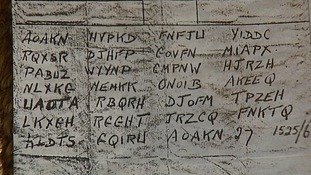 AOAKN HVPKD FNFJW YIDDC
RQXSR DJHFP GOVFN MIAPX
PABUZ WYYNP CMPNW HJRZH
NLXKG MEMKK ONOIB AKEEQ
UAOTA RBQRH DJOFM TPZEH
LKXGH RGGHT JRZCQ FNKTQ
KLDTS GQIRU AOAKN 27 1525/6